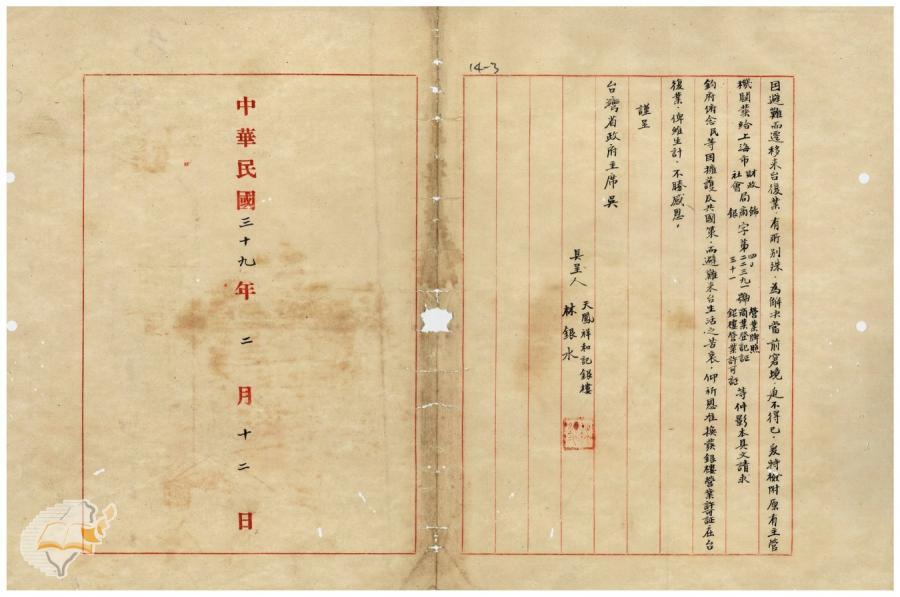 14-3
因避難而遷移來台復業，有所別殊，為解决當前窘境，迫不得已，爰特檢附原有主管
機關業給上海市財政社會局商銀字第二二三九一號營業牌照商業登記証銀樓營業許可証等件影本具文請求
鈞府俯念民等因擁護反共國策，而避難來台生活之苦衷，仰祈恩准換發銀樓營業許可証在台
復業，俾維生計，不勝感恩，
謹呈
台灣省政府主席吳
具呈人 天鳳祥和記銀樓
林銀水
中華民國三十九年二月十二日